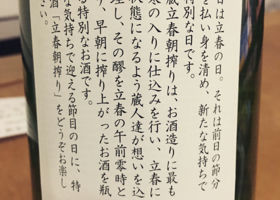 日は立春の日。それは前日の節分
を払い身を清め、新たな気持ちで
特別な日です。
蔵立春朝搾りは、お酒造りに最も
寒の入りに仕込みを行い、立春に
状態になるよう蔵人達が想いを込
理し、その醪を立春の午前零時と
り、早朝に搾り上がったお酒を瓶
る特別なお酒です。
な気持ちで迎える節目の日に、特
酒「立春朝搾り」をどうぞお楽し
さい。